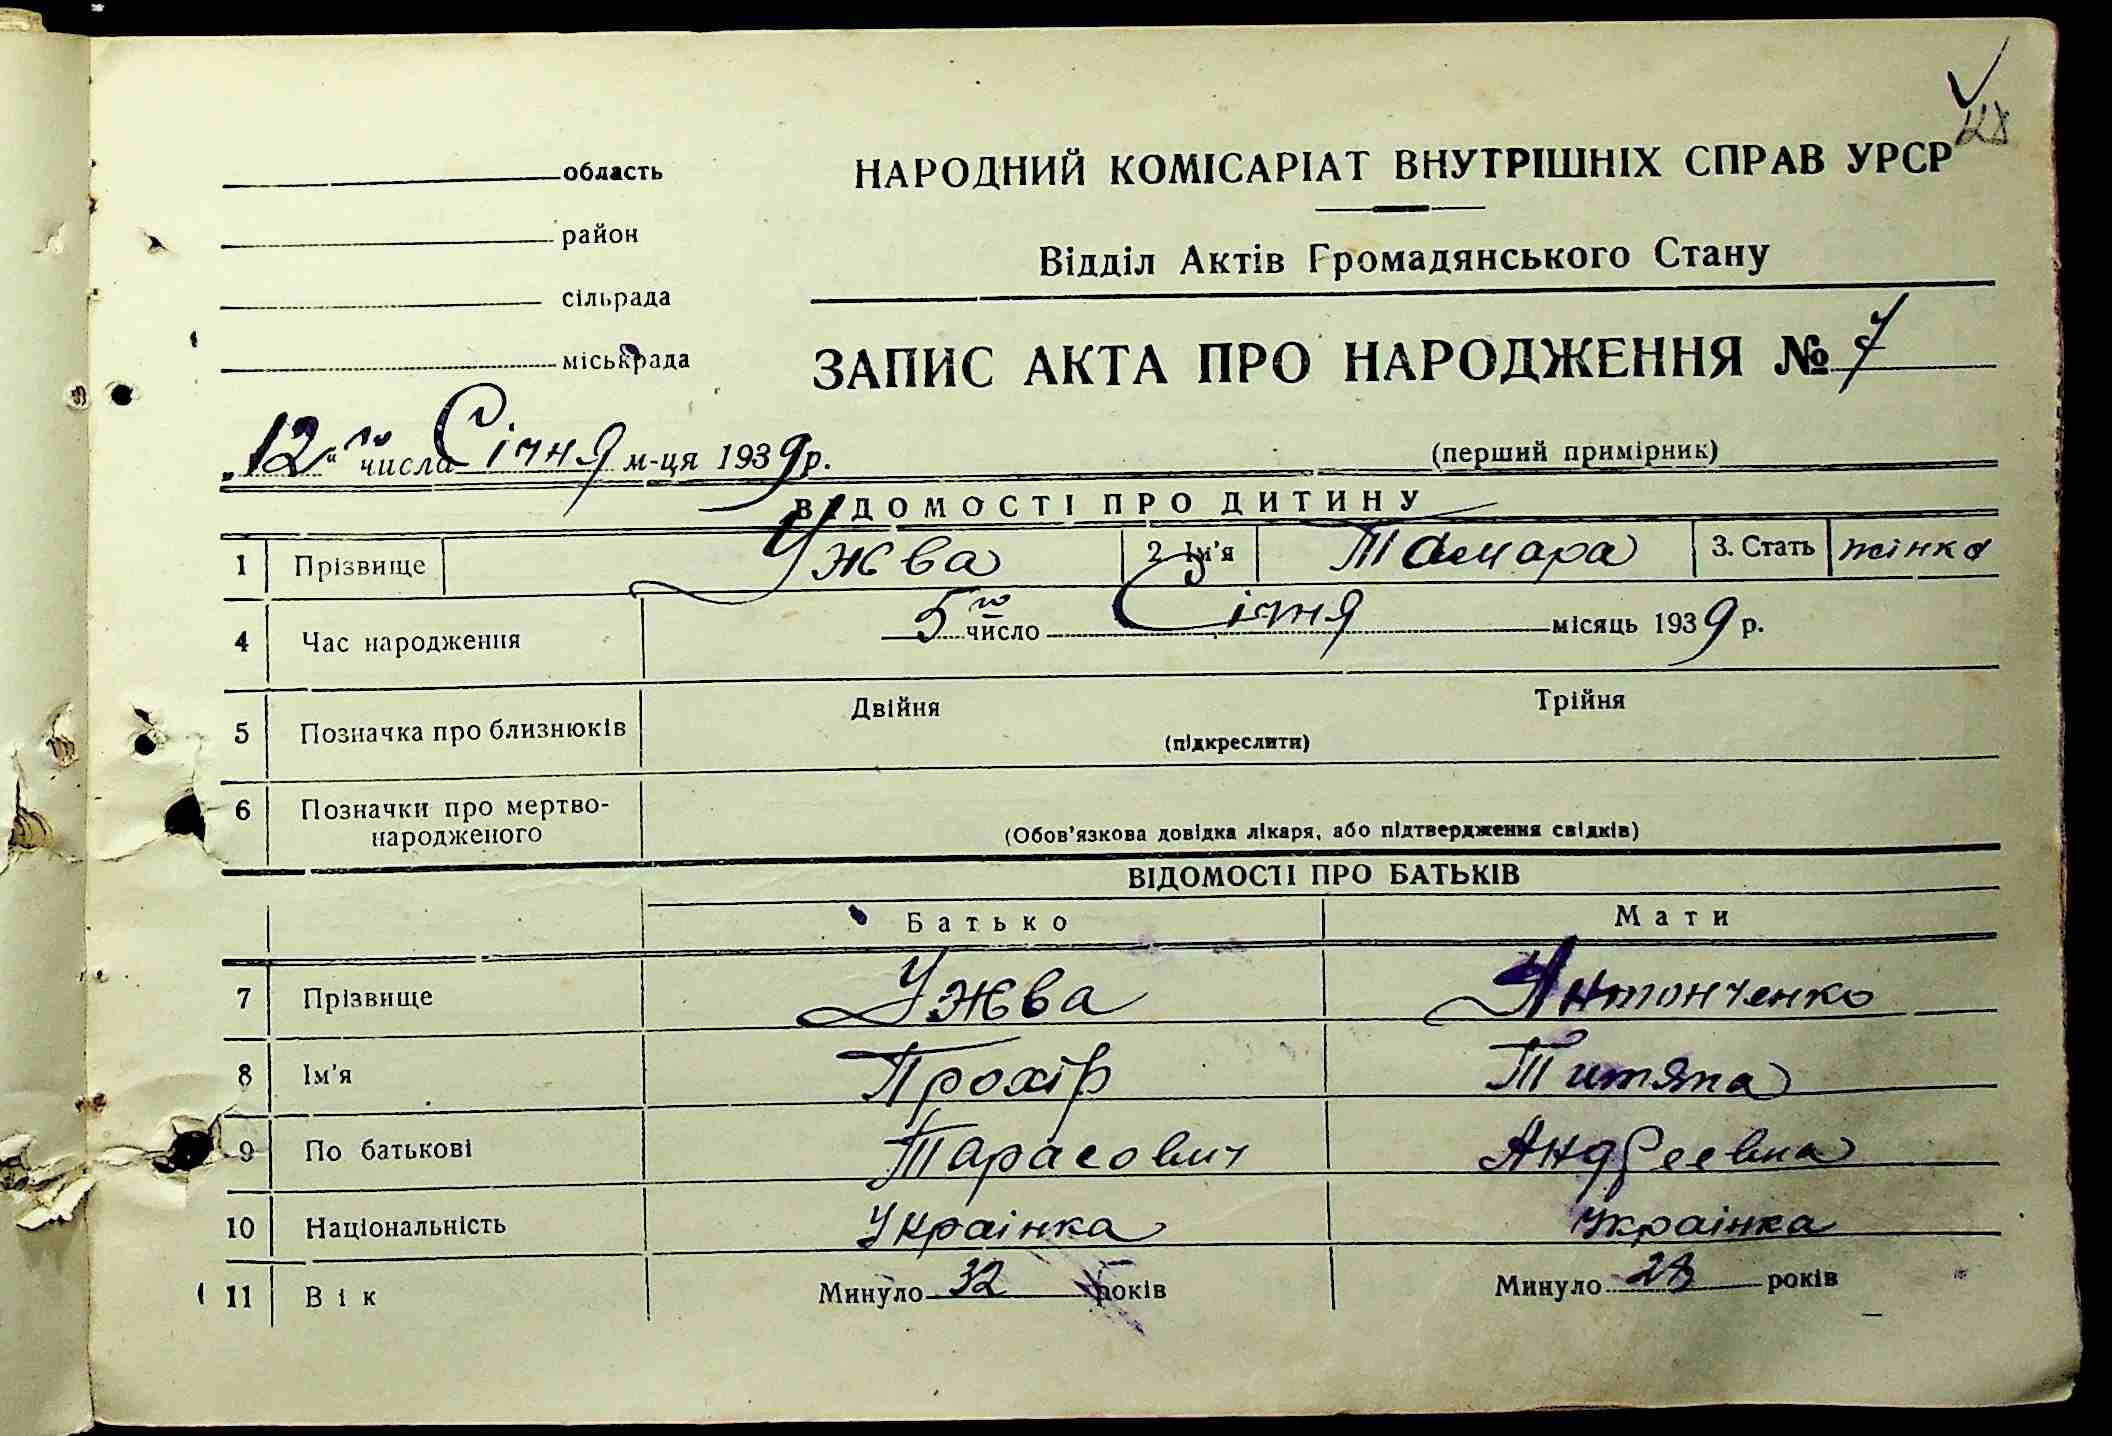 область
район
сільрада
міськрада
НАРОДНИЙ КОМІСАРІАТ ВНУТРІШНІХ СПРАВ УРСР
Відділ Актів Громадянського Стану
ЗАПИС АКТА ПРО НАРОДЖЕННЯ № 7
„12“ го числа Січня м-ця 1939 р.
(перший примірник)
ВІДОМОСТІ ПРО ДИТИНУ
1 Прізвище Ужва 2. Ім'я Тамара 3. Стать жінка
4 Час народження 5го число Січня місяць 1939 р.
5 Позначка про близнюків Двійня Трійня
(підкреслити)
6 Позначки про мертво-
народженого
(Обов'язкова довідка лікаря, або підтвердження свідків)
ВІДОМОСТІ ПРО БАТЬКІВ
Батько Мати
7 Прізвище Ужва Антонченко
8 Ім'я Прохір Титяна
9 По батькові Тарасович Андреевна
10 Національність Українка Українка
11 Вік Минуло 32 років Минуло 28 років